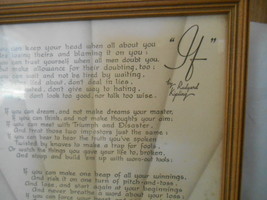 "If"
by Rudyard Kipling
you keep your head when all about you
losing theirs and blaming it on you;
you can trust yourself when all men doubt you,
make allowance for their doubting, too;
can wait and not be tired by waiting,
lied about, don't deal in lies,
hated, don't give way to hating,
don't look too good, nor talk too wise.
If you can dream, and not make dreams your master,
If you can think, and not make thoughts your aim;
you can meet with Triumph and Disaster,
And treat those two impostors just the same;
If you can bear to hear the truth you've spoken
Twisted by knaves to make a trap for fools,
Or watch the things you gave your life to, broken,
And stoop and build 'em up with worn-out tools:
If you can make one heap of all your winnings,
And risk it on one turn of pitch-and-toss,
And lose, and start again at your beginnings
And never breathe a word about your loss;